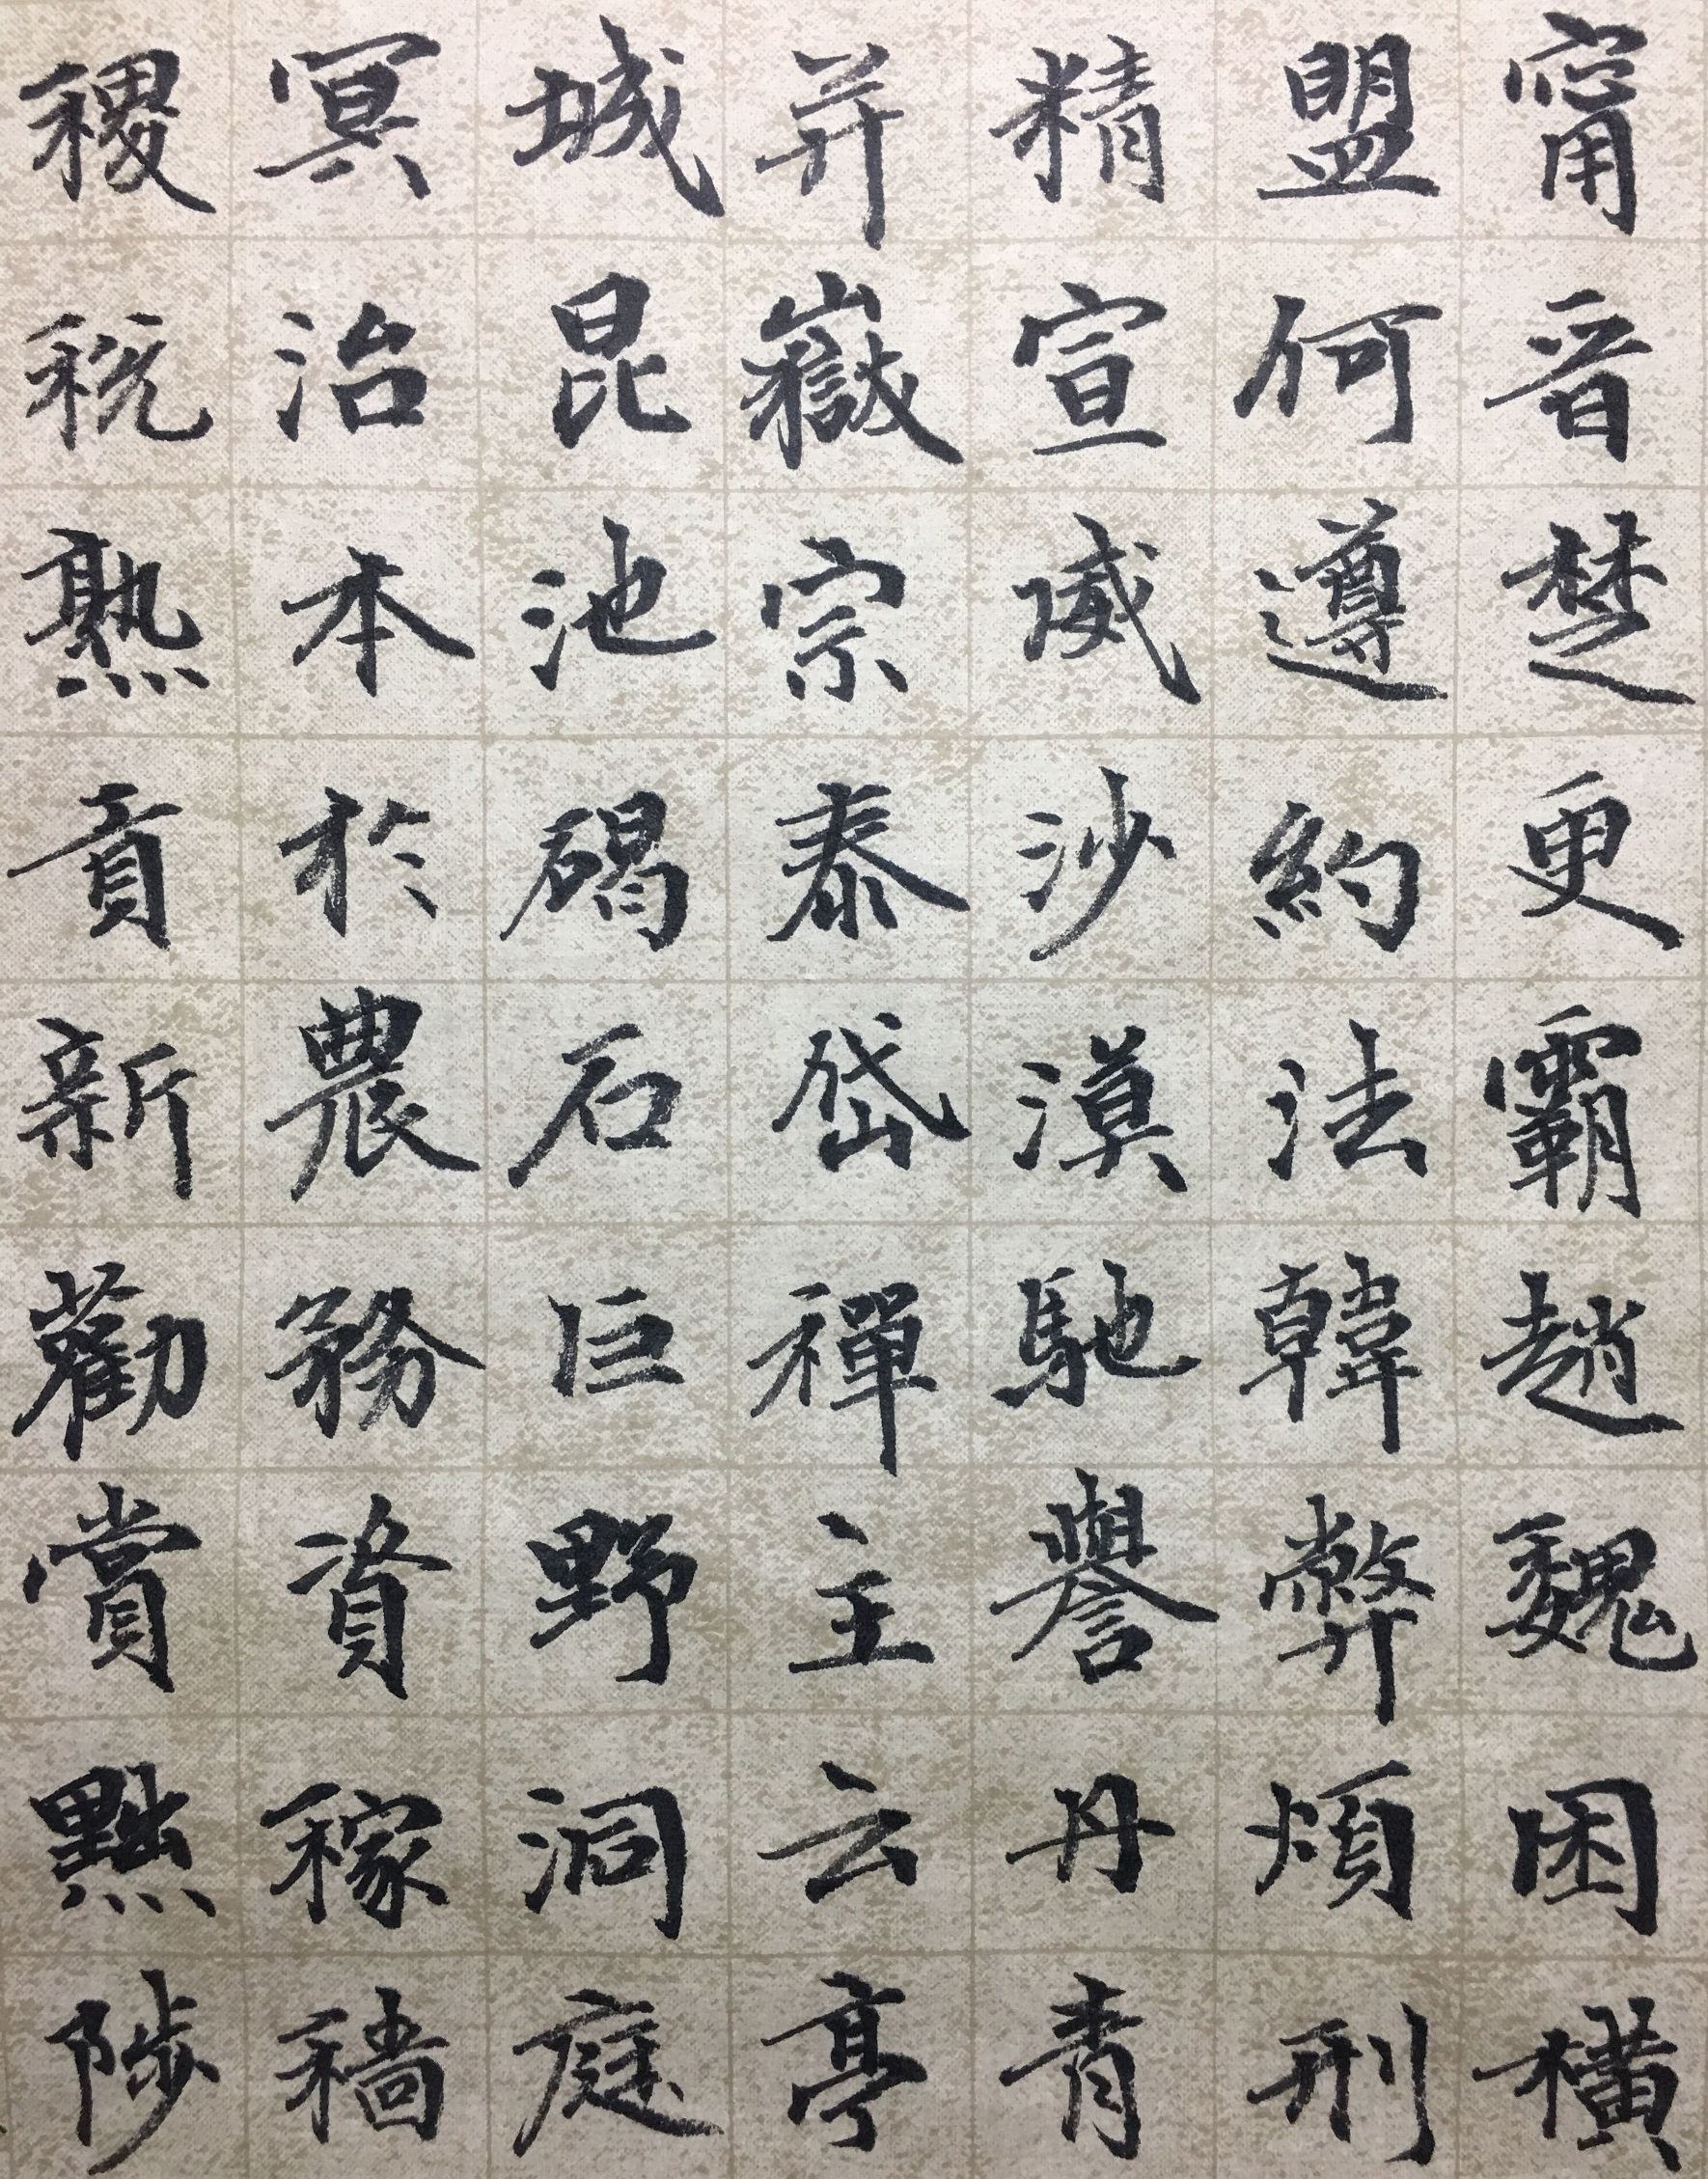 甯晉楚更霸趙魏困橫
盟何遵約法韓弊煩刑
精宣威沙漠馳譽丹青
并嶽宗泰岱禪主云亭
城昆池碣石巨野洞庭
冥治本於農務資稼穡
稷稅熟貢新勸賞黜陟